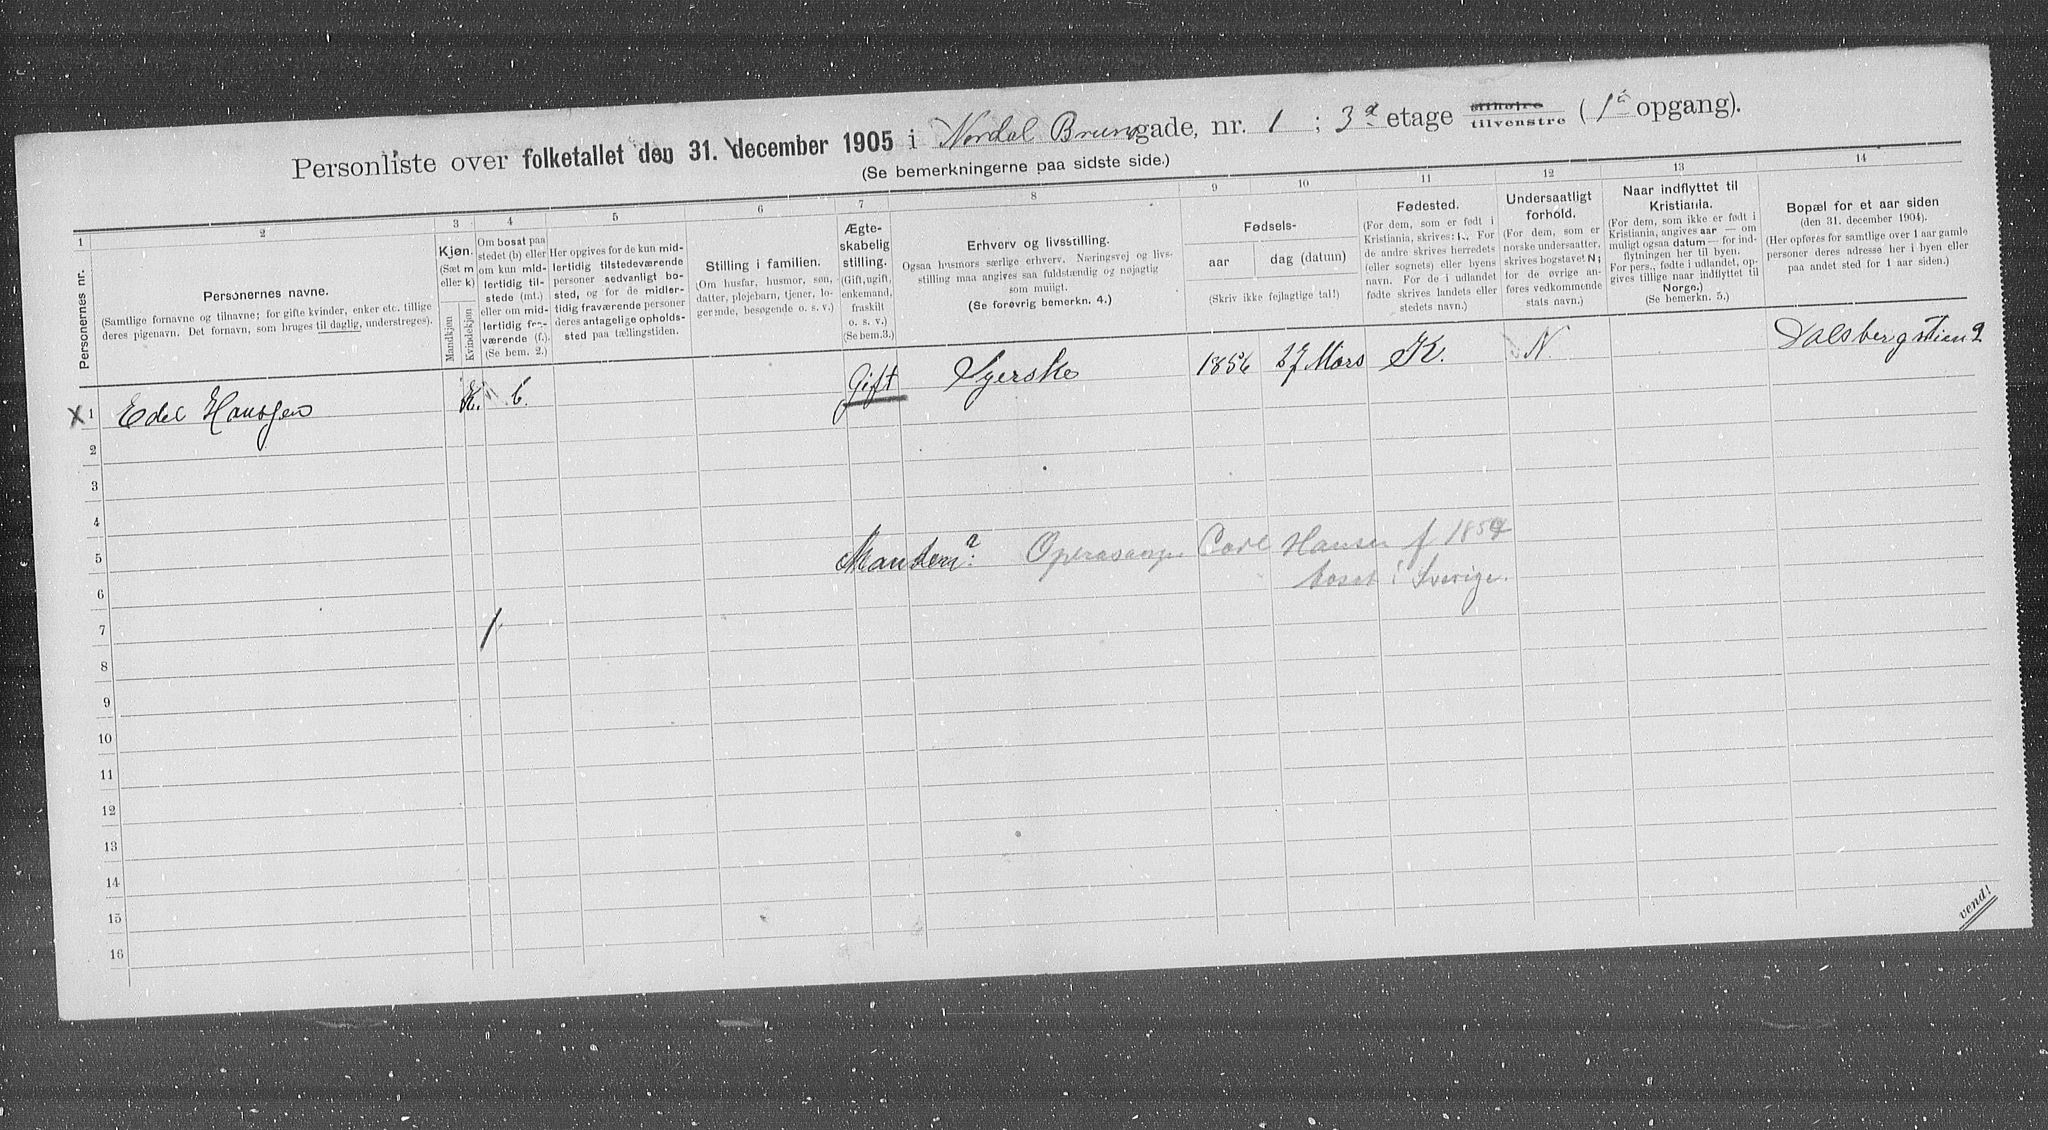 Personliste over folketallet den 31. december 1905 i Nordal Brunsgade, nr. 1 ; 3d etage tilhøire tilvenstre ( 1ē opgang).
(Se bemerkningerne paa sidste side.)
1 2 3 4 5 6 7 8 9 10 11 12 13 14
Personernes nr.
Personernes navne.
(Samtlige fornavne og tilnavne; for gifte kvinder, enker etc. tillige
deres pigenavn. Det fornavn, som bruges til daglig, understreges).
Kjøn.
(Sæt m
eller k)
Mandkjøn
Kvindekjøn
Om bosat paa
stedet (b) eller
om kun mid-
lertidig til-
stede (mt.)
eller om mid-
lertidig fra-
værende (f.).
(Se bem. 2.)
Her opgives for de kun mid-
lertidig tilstedeværende
personer sedvanligt bo-
sted, og for de midler-
tidig fraværende personer
deres antagelige opholds-
sted paa tællingstiden.
Stilling i familien.
(Om husfar, husmor, søn,
datter, plejebarn, tjener, lo-
gerende, besøgende o. s. v.)
Ægte-
skabelig
stilling.
(Gift, ugift,
enkemand,
fraskilt
o. s. v.)
(Se bem. 3.)
Erhverv og livsstilling.
Ogsaa husmors særlige erhverv. Næringsvej og livs-
stilling maa angives saa fuldstændig og nøjagtig
som muligt.
(Se forøvrig bemerkn. 4.)
Fødsels-
aar
dag (datum)
(Skriv ikke fejlagtige tal!)
Fødested.
(For dem, som er født i
Kristiania, skrives: K. For
de andre skrives herredets
(eller sognets) eller byens
navn. For de i udlandet
fødte skrives landets eller
stedets navn.)
Undersaatligt
forhold.
(For dem, som er
norske undersaatter,
skrives bogstavet N;
for de øvrige an-
føres vedkommende
stats navn.)
Naar indflyttet til
Kristiania.
(For dem, som ikke er født i
Kristiania, angives aar — om
muligt ogsaa datum — for ind-
flytningen her til byen.
For pers., fødte i udlandet, op-
gives tillige naar indflyttet til
Norge.)
(Se bemerkn. 5.)
Bopæl for et aar siden
(den 31. december 1904).
(Her opføres for samtlige over 1 aar gamle
personer deres adresse her i byen eller
paa andet sted for 1 aar siden.)
X 1 Edel Hanssen K. b. Gift Syerske 1856 27 Mars K. N Dalsbergstien 2
2
3
4
5 Manden? Operasanger Carl Hansen f 1859
6 bosat i Sverige.
7 1
8
9
10
11
12
13
14
15
16
vend!